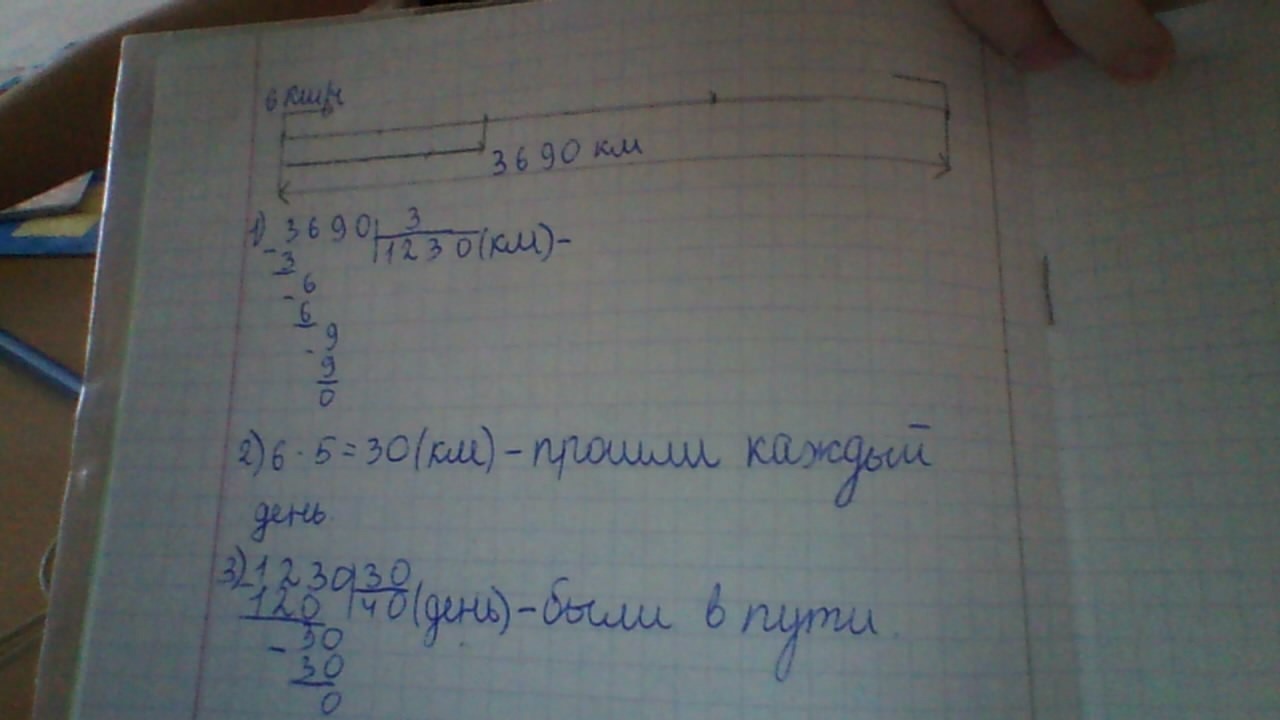 6 км/ч
3690 км
1) 3690 | 3
- 3 1230 (км) -
6
- 6
9
- 9
0
2) 6 · 5 = 30 (км) - прошли каждый
день.
3) 1230 | 30
- 120 40 (день) - были в пути.
30
- 30
0